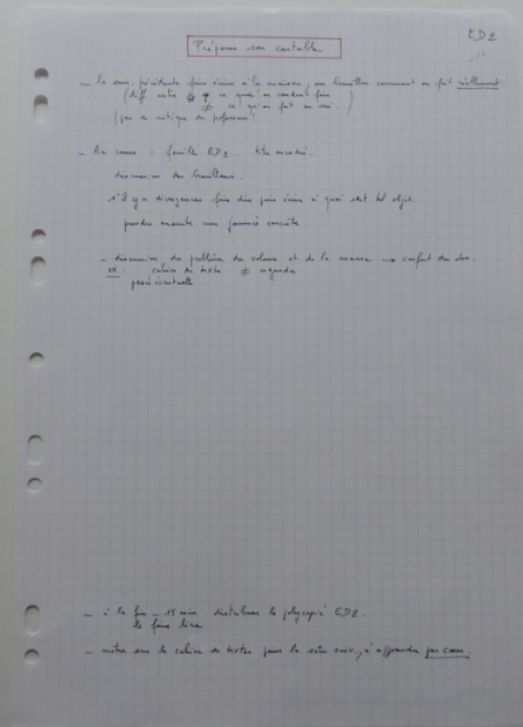 ED2
Préparer son cartable
- la séance précédente faire écrire à la maison, au brouillon comment on fait réellement.
(diff entre ce que l'on voudrait faire
≠ ce qu'on fait en vrai.)
(pas de critique du professeur!)
- Au cours : feuille ED2. titre encadré.
discussion des brouillons.
s'il y a divergences faire dire puis écrire à quoi sert tel objet.
prendre ensuite une journée concrète
- discussion du problème du volume et de la masse → confort du dos.
ex : cahier de texte ≠ agenda
pesée éventuelle
- à la fin - 15 min distribuer le polycopié ED2.
le faire lire
- mettre sur le cahier de textes pour la séance suiv., à apprendre par cœur.